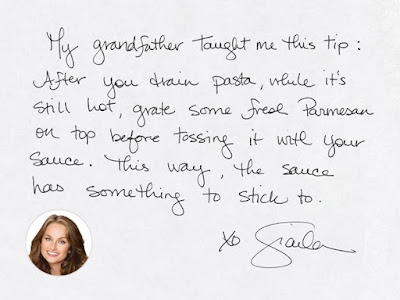 My grandfather taught me this tip:
After you drain pasta, while it's
still hot, grate some fresh Parmesan
on top before tossing it with your
sauce. This way, the sauce
has something to stick to.
xo Giada